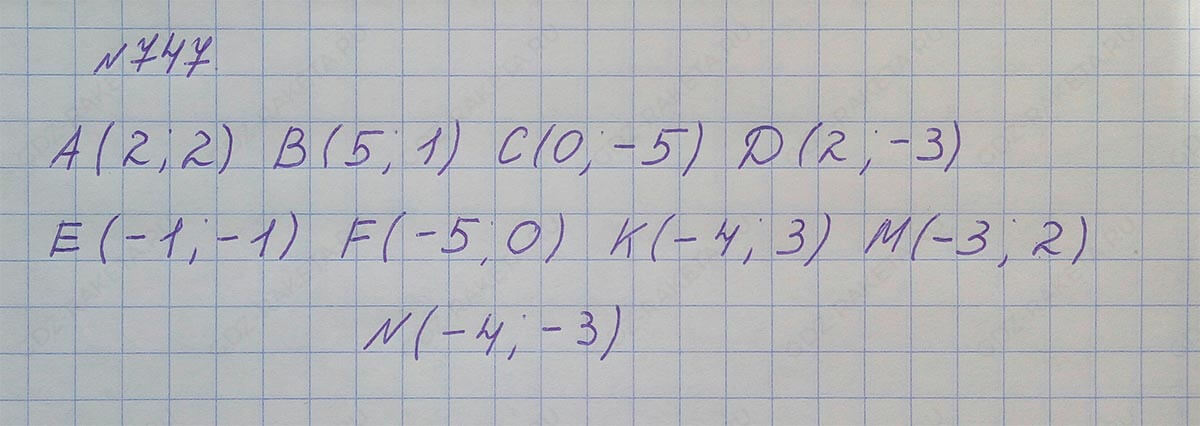 №747.
A(2;2) B(5;1) C(0;-5) D(2;-3)
E(-1;-1) F(-5;0) K(-4;3) M(-3;2)
N(-4;-3)